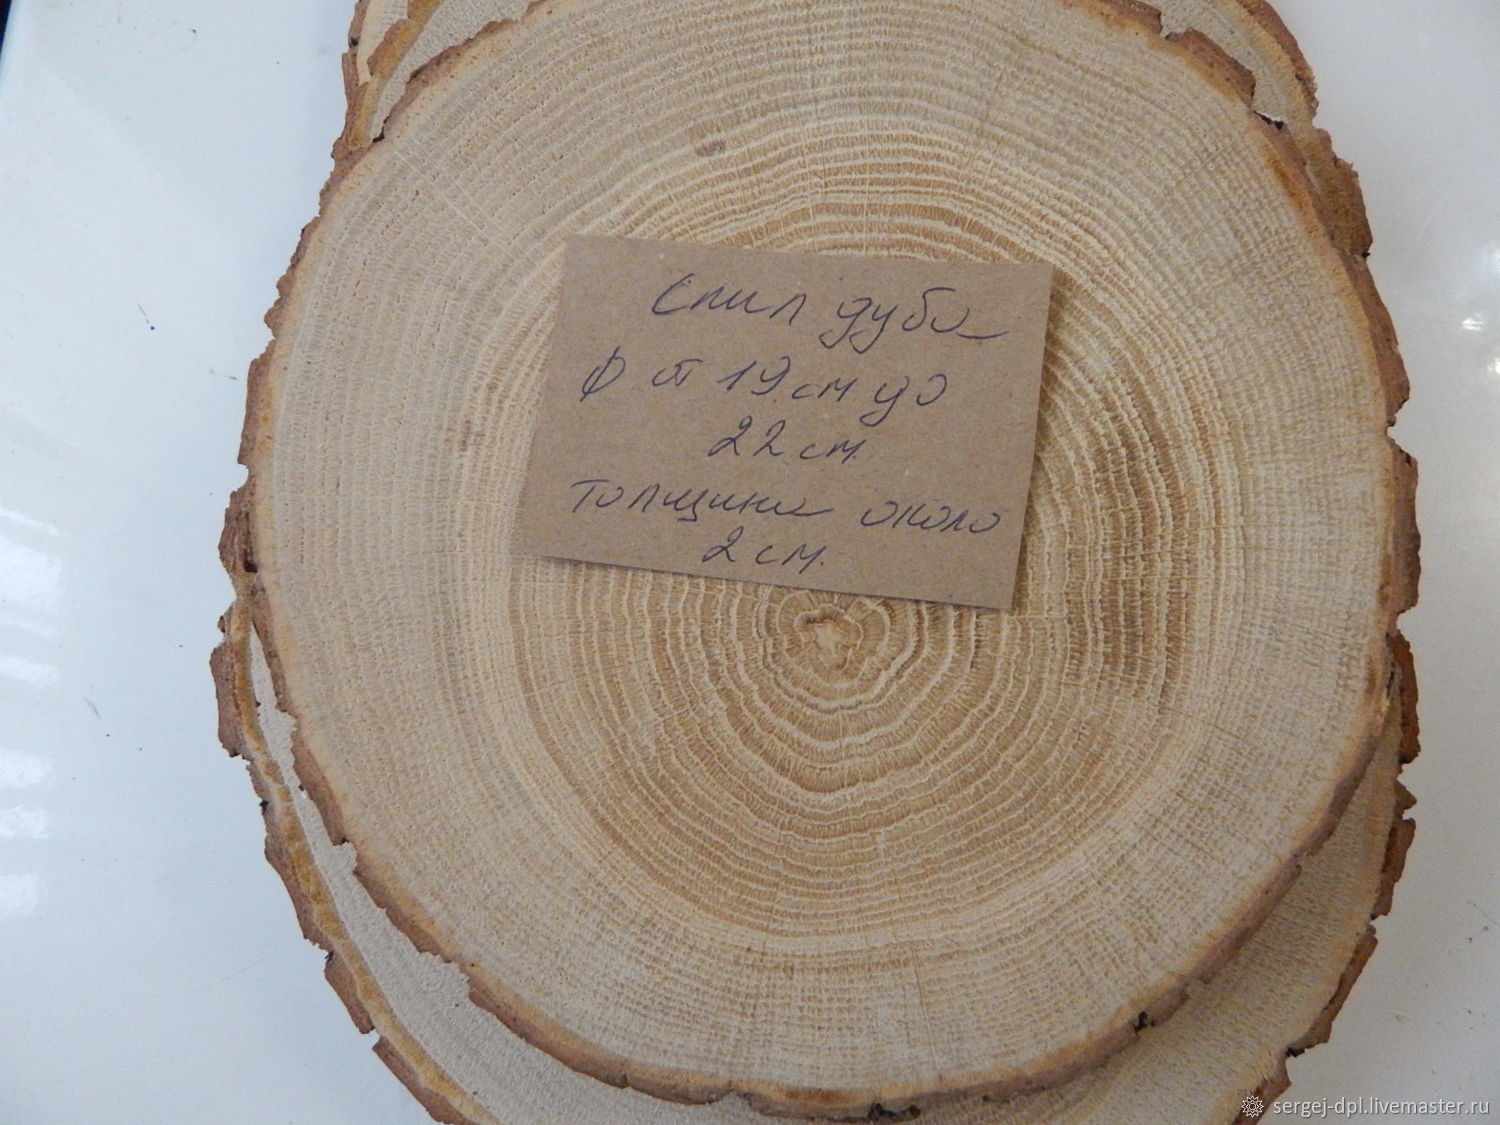 Спил дуба
Ф от 19 см до
22 см.
толщина около
2 см.
sergej-dpl.livemaster.ru